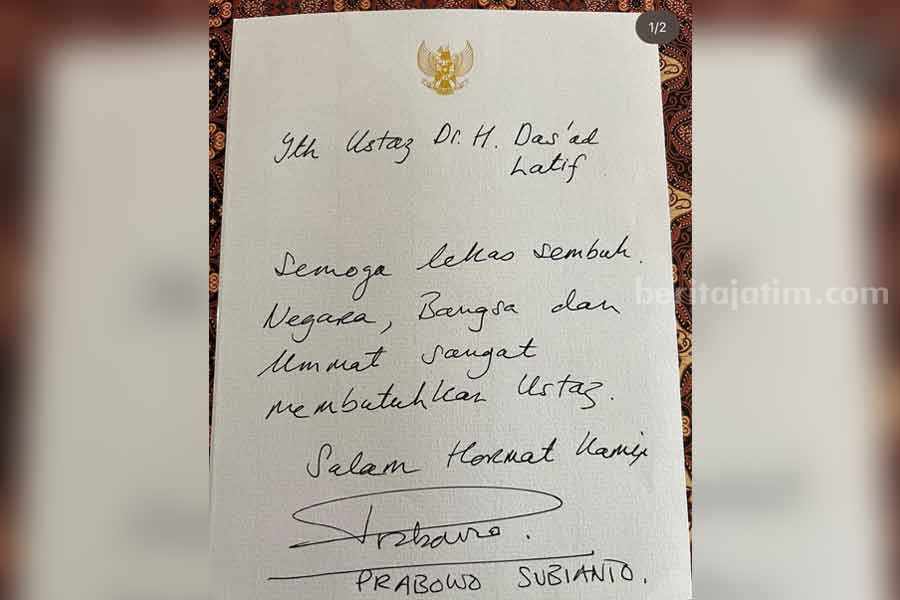 1/2
Yth Ustaz Dr. H. Das'ad
Latif
Semoga lekas sembuh.
Negara, Bangsa dan
Ummat sangat
membutuhkan Ustaz.
Salam Hormat Kami
Prabowo.
PRABOWO SUBIANTO.
beritajatim.com